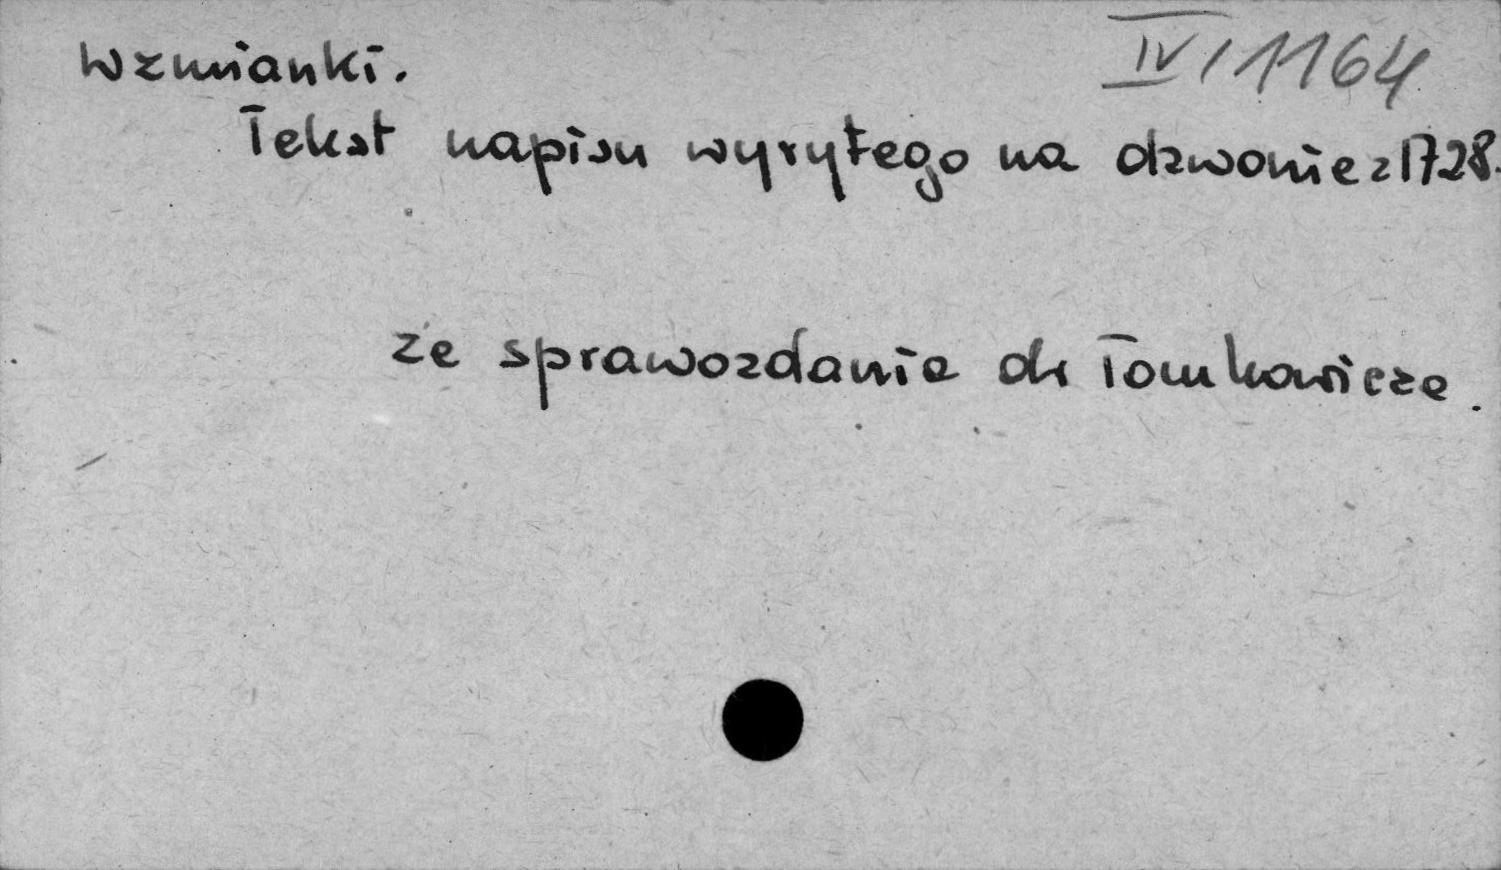 IV/1164
Wzmianki.
Tekst napisu wyrytego na dzwonie z 1728.
ze sprawozdania dr Tomkowicza.